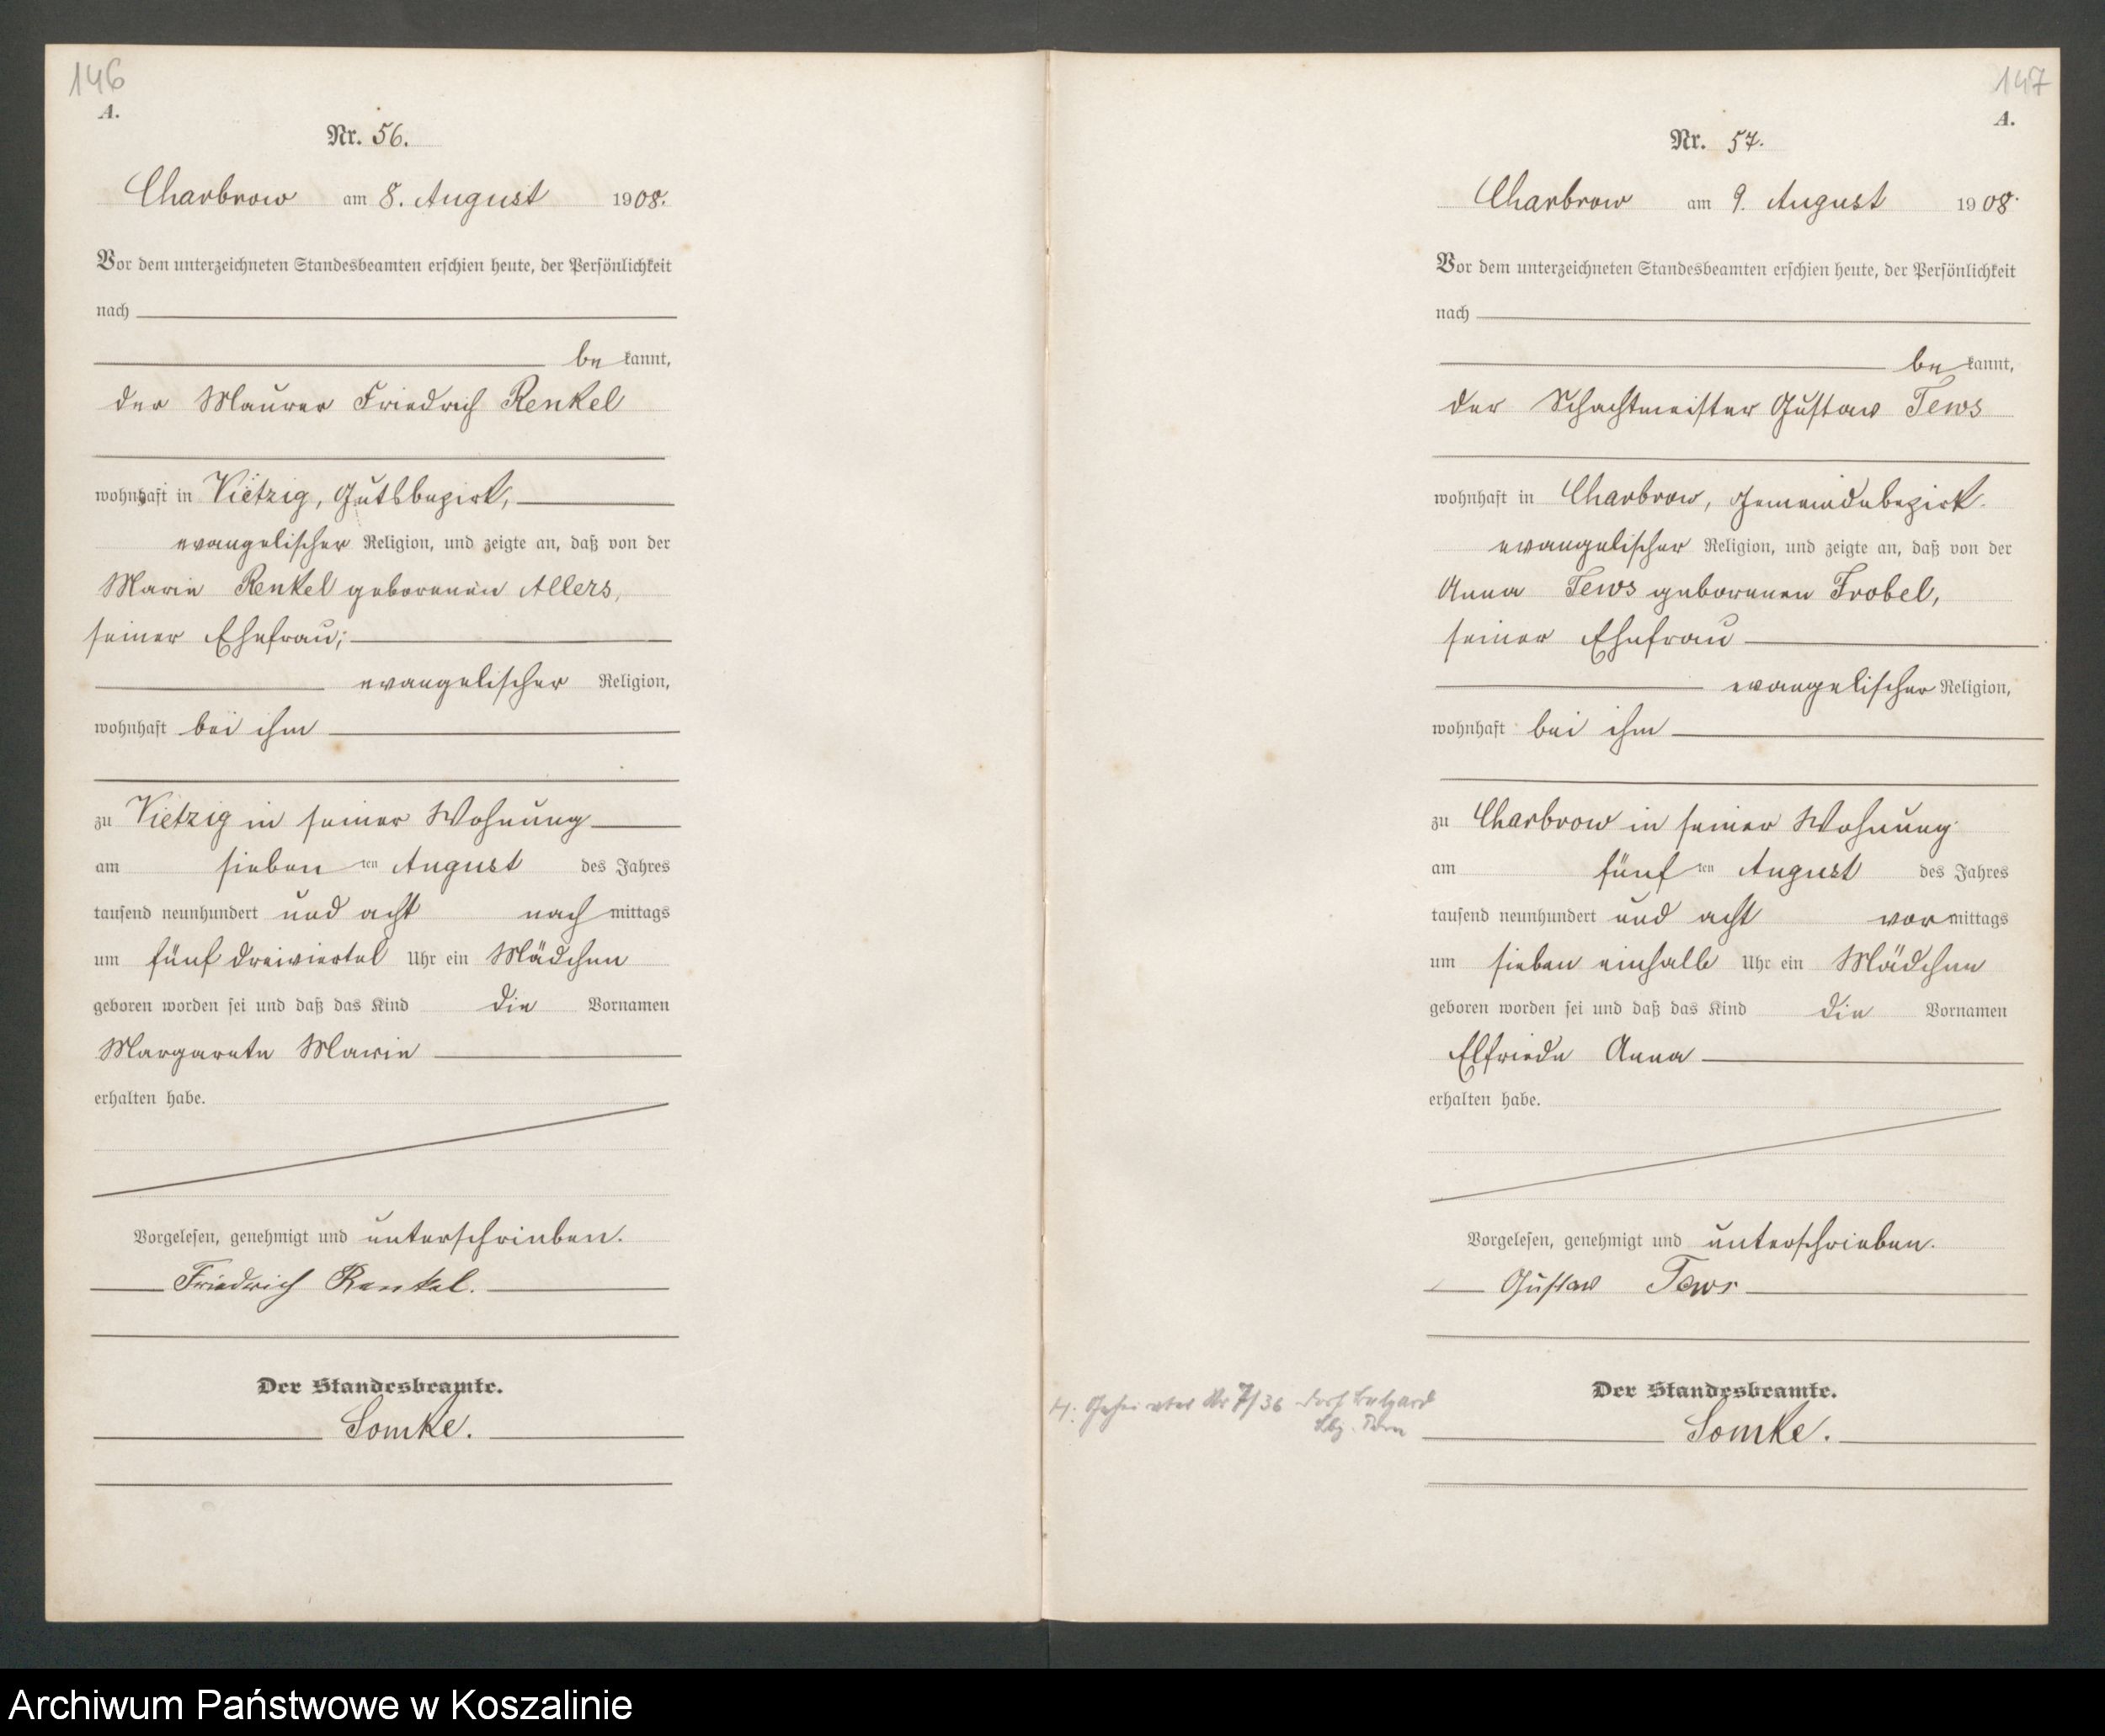 146
A.
Nr. 56.
Charbrow am 8. August 1908.
Vor dem unterzeichneten Standesbeamten erschien heute, der Persönlichkeit
nach
bekannt,
der Maurer Friedrich Renkel
wohnhaft in Vietzig, Gutsbezirk,
evangelischer Religion, und zeigte an, daß von der
Marie Renkel geborenen Allers,
seiner Ehefrau;
evangelischer Religion,
wohnhaft bei ihm
zu Vietzig in seiner Wohnung
am siebenten August des Jahres
tausend neunhundert und acht nachmittags
um fünf dreiviertel Uhr ein Mädchen
geboren worden sei und daß das Kind die Vornamen
Margarete Marie
erhalten habe.
Vorgelesen, genehmigt und unterschrieben.
Friedrich Renkel.
Der Standesbeamte.
Somke.
147
A.
Nr. 57.
Charbrow am 9. August 1908.
Vor dem unterzeichneten Standesbeamten erschien heute, der Persönlichkeit
nach
bekannt,
der Schachtmeister Gustav Tews
wohnhaft in Charbrow, Gemeindebezirk.
evangelischer Religion, und zeigte an, daß von der
Anna Tews geborenen Frobel,
seiner Ehefrau
evangelischer Religion,
wohnhaft bei ihm
zu Charbrow in seiner Wohnung
am fünften August des Jahres
tausend neunhundert und acht vormittags
um sieben einhalb Uhr ein Mädchen
geboren worden sei und daß das Kind die Vornamen
Elfriede Anna
erhalten habe.
Vorgelesen, genehmigt und unterschrieben.
Gustav Tews
Der Standesbeamte.
Somke.
Nr 7/36
Archiwum Państwowe w Koszalinie